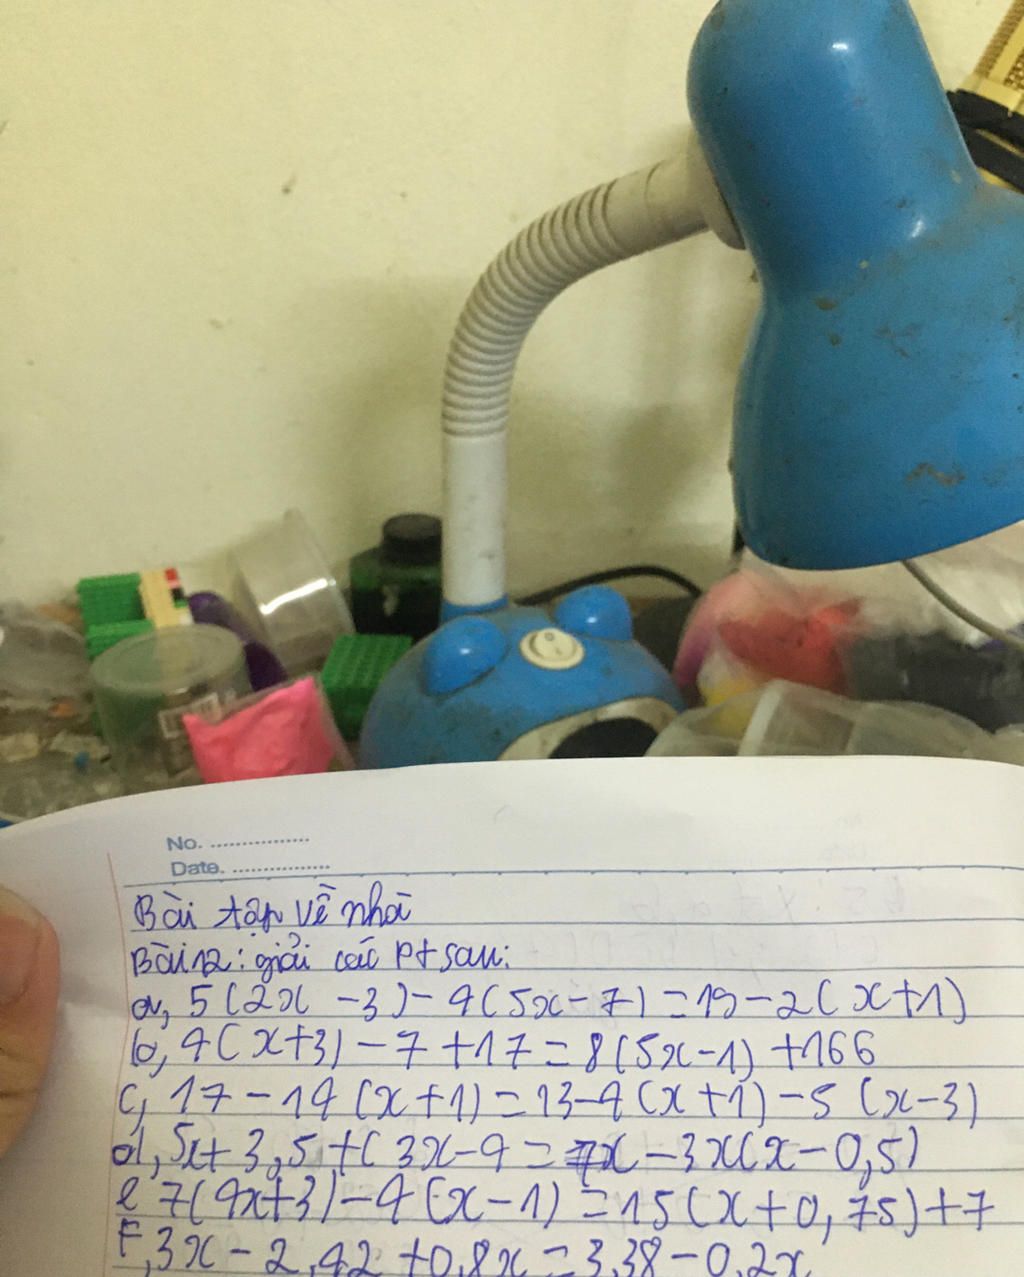 No. ................
Date. ..................
Bài tập về nhà
Bài 12: giải các pt sau:
a, 5(2x - 3) - 4(5x - 7) = 19 - 2(x + 1)
b, 4(x + 3) - 7 + 17 = 8(5x - 1) + 166
c, 17 - 14(x + 1) = 13 - 4(x + 1) - 5(x - 3)
d, 5x + 3,5 + ( 3x - 4 = 7x - 3x(x - 0,5)
e 7(4x + 3) - 4(x - 1) = 15(x + 0,75) + 7
F, 3x - 2,42 + 0,8x = 3,38 - 0,2x